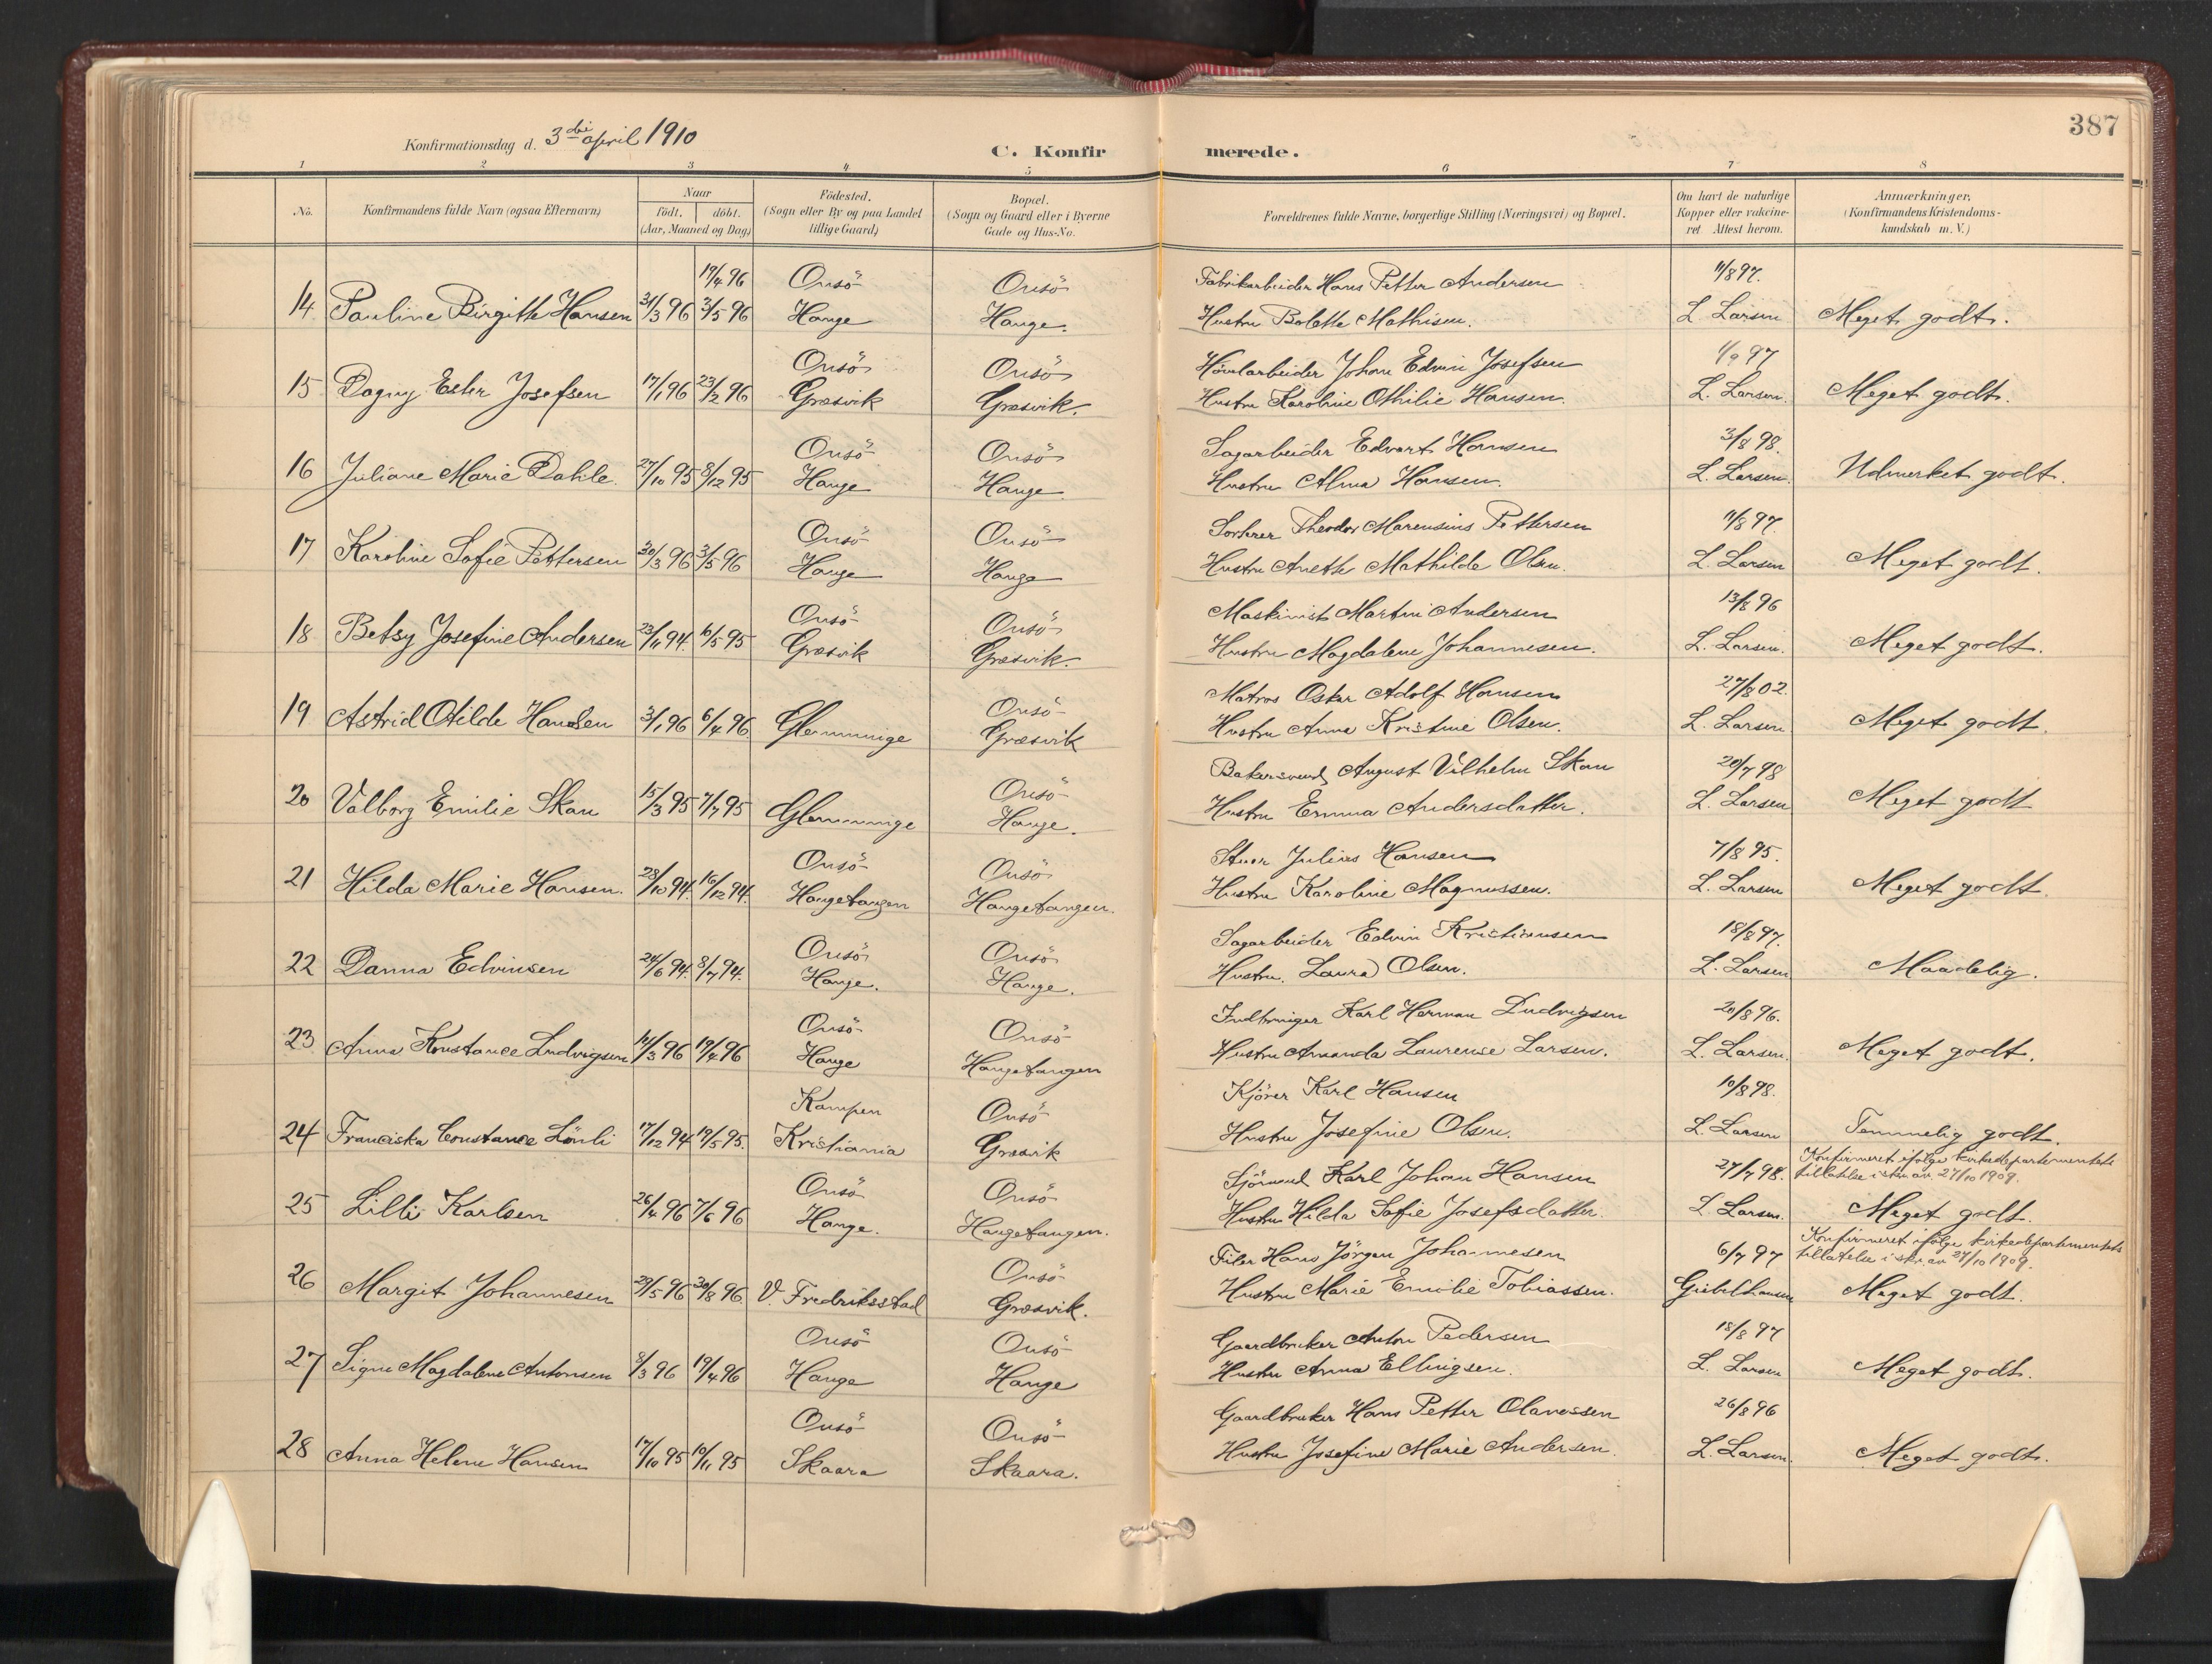 387
Konfirmationsdag d. 3die april 1910
C. Konfirmerede.
1 2 3 4 5 6 7 8
No.
Konfirmandens fulde Navn (ogsaa Efternavn)
Naar
födt. döbt.
(Aar, Maaned og Dag)
Födested.
(Sogn eller By og paa Landet
tillige Gaard)
Bopæl.
(Sogn og Gaard eller i Byerne
Gade og Hus-No.
Forældrenes fulde Navne, borgerlige Stilling (Næringsvei) og Bopæl.
Om havt de naturlige
Kopper eller vakcine-
ret. Attest herom.
Anmærkninger.
(Konfirmandens Kristendoms-
kundskab m. V.)
19/4 96 Onsö Onsö Fabrikarbeider Hans Petter Andersen 11/8 97.
14 Pauline Birgitte Hansen 31/3 96 3/5 96 Hauge Hauge. Hustru Bolette Mathisen. L. Larsen Meget godt.
Onsö Onsö Hövlarbeider Johan Edvin Josefsen 1/9 97
15 Dagny Ester Josefsen 17/1 96 23/2 96 Græsvik Græsvik. Hustru Karoline Othilie Hansen. L. Larsen. Meget godt.
Onsö Onsö Sagarbeider Edvart Hansen 3/8 98.
16 Juliane Marie Dahle. 27/10 95 8/12 95 Hauge Hauge. Hustru Alma Hansen. L. Larsen. Udmerket godt.
Onsö Onsö Sorterer Theodor Marensius Pettersen 11/8 97.
17 Karoline Sofie Pettersen 20/3 96 3/5 96 Hauge Hauge Hustru Anette Mathilde Olsen. L. Larsen Meget godt.
Onsö Onsö Maskinist Martin Andersen 13/8 96
18 Betsy Josefine Andersen 23/11 94. 6/5 95 Græsvik Græsvik. Hustru Magdalene Johannesen. L. Larsen. Meget godt.
Onsö Matros Oskar Adolf Hansen 27/8 02.
19 Astrid Otilde Hansen 3/1 96 6/4 96. Glemminge Græsvik Hustru Anna Kristine Olsen. L. Larsen. Meget godt.
Onsö Bakersvend August Vilhelm Skau 20/7 98
20 Valborg Emilie Skau 15/3 95 7/7 95 Glemminge Hauge. Hustru Emma Andersdatter. L. Larsen Meget godt
Onsö Onsö Stuer Julius Hansen 7/8 95.
21 Hilda Marie Hansen. 28/10 94. 16/12 94. Haugetangen Haugetangen. Hustru Karoline Magnussen. L. Larsen Meget godt.
Onsö Onsö Sagarbeider Edvin Kristiansen 18/8 97.
22 Danna Edvinsen 24/6 94. 8/7 94. Hauge. Hauge. Hustru. Laura Olsen. L. Larsen Maadelig.
Onsö Onsö Indbringer Karl Herman Ludvigsen 20/8 96.
23 Anna Konstance Ludvigsen 14/3 96 19/4 96 Hauge Haugetangen Hustru Amanda Laurense Larsen. L. Larsen. Meget godt.
Kampen Onsö Kjörer Karl Hansen 10/8 98.
24 Franciska Constance Lönli 17/12 94 19/5 95. Kristiania Græsvik Hustru Josefine Olsen. L. Larsen Temmelig godt.
Onsö Onsö Sjömand Karl Johan Hansen 27/7 98. Konfirmeret ifölge kirkedepartementets
tillatelse i skr. av 27/10 1909.
25 Lilli Karlsen 26/4 96 7/6 96 Hauge. Haugetangen. Hustru Hilda Sofie Josefsdatter. L. Larsen. Meget godt.
Onsö Filer Hans Jörgen Johannesen 6/7 97 Konfirmeret ifölge kirkedepartementets
tillatelse i skr. av 27/10 1909.
26 Margit Johannesen 29/5 96 30/8 96 V. Fredriksstad Græsvik. Hustru Marie Emilie Tobiassen. Giebelhausen Meget godt.
Onsö Onsö Gaardbruker Anton Pedersen 18/8 97
27 Signe Magdalene Antonsen 8/3 96 19/4 96 Hauge Hauge Hustru Anna Ellingsen. L. Larsen Meget godt.
Onsö Onsö Gaardbruker Hans Petter Olaussen 26/8 96
28 Anna Helene Hansen 17/10 95 10/11 95 Skaara Skaara. Hustru Josefine Marie Andersen. L. Larsen. Meget godt.